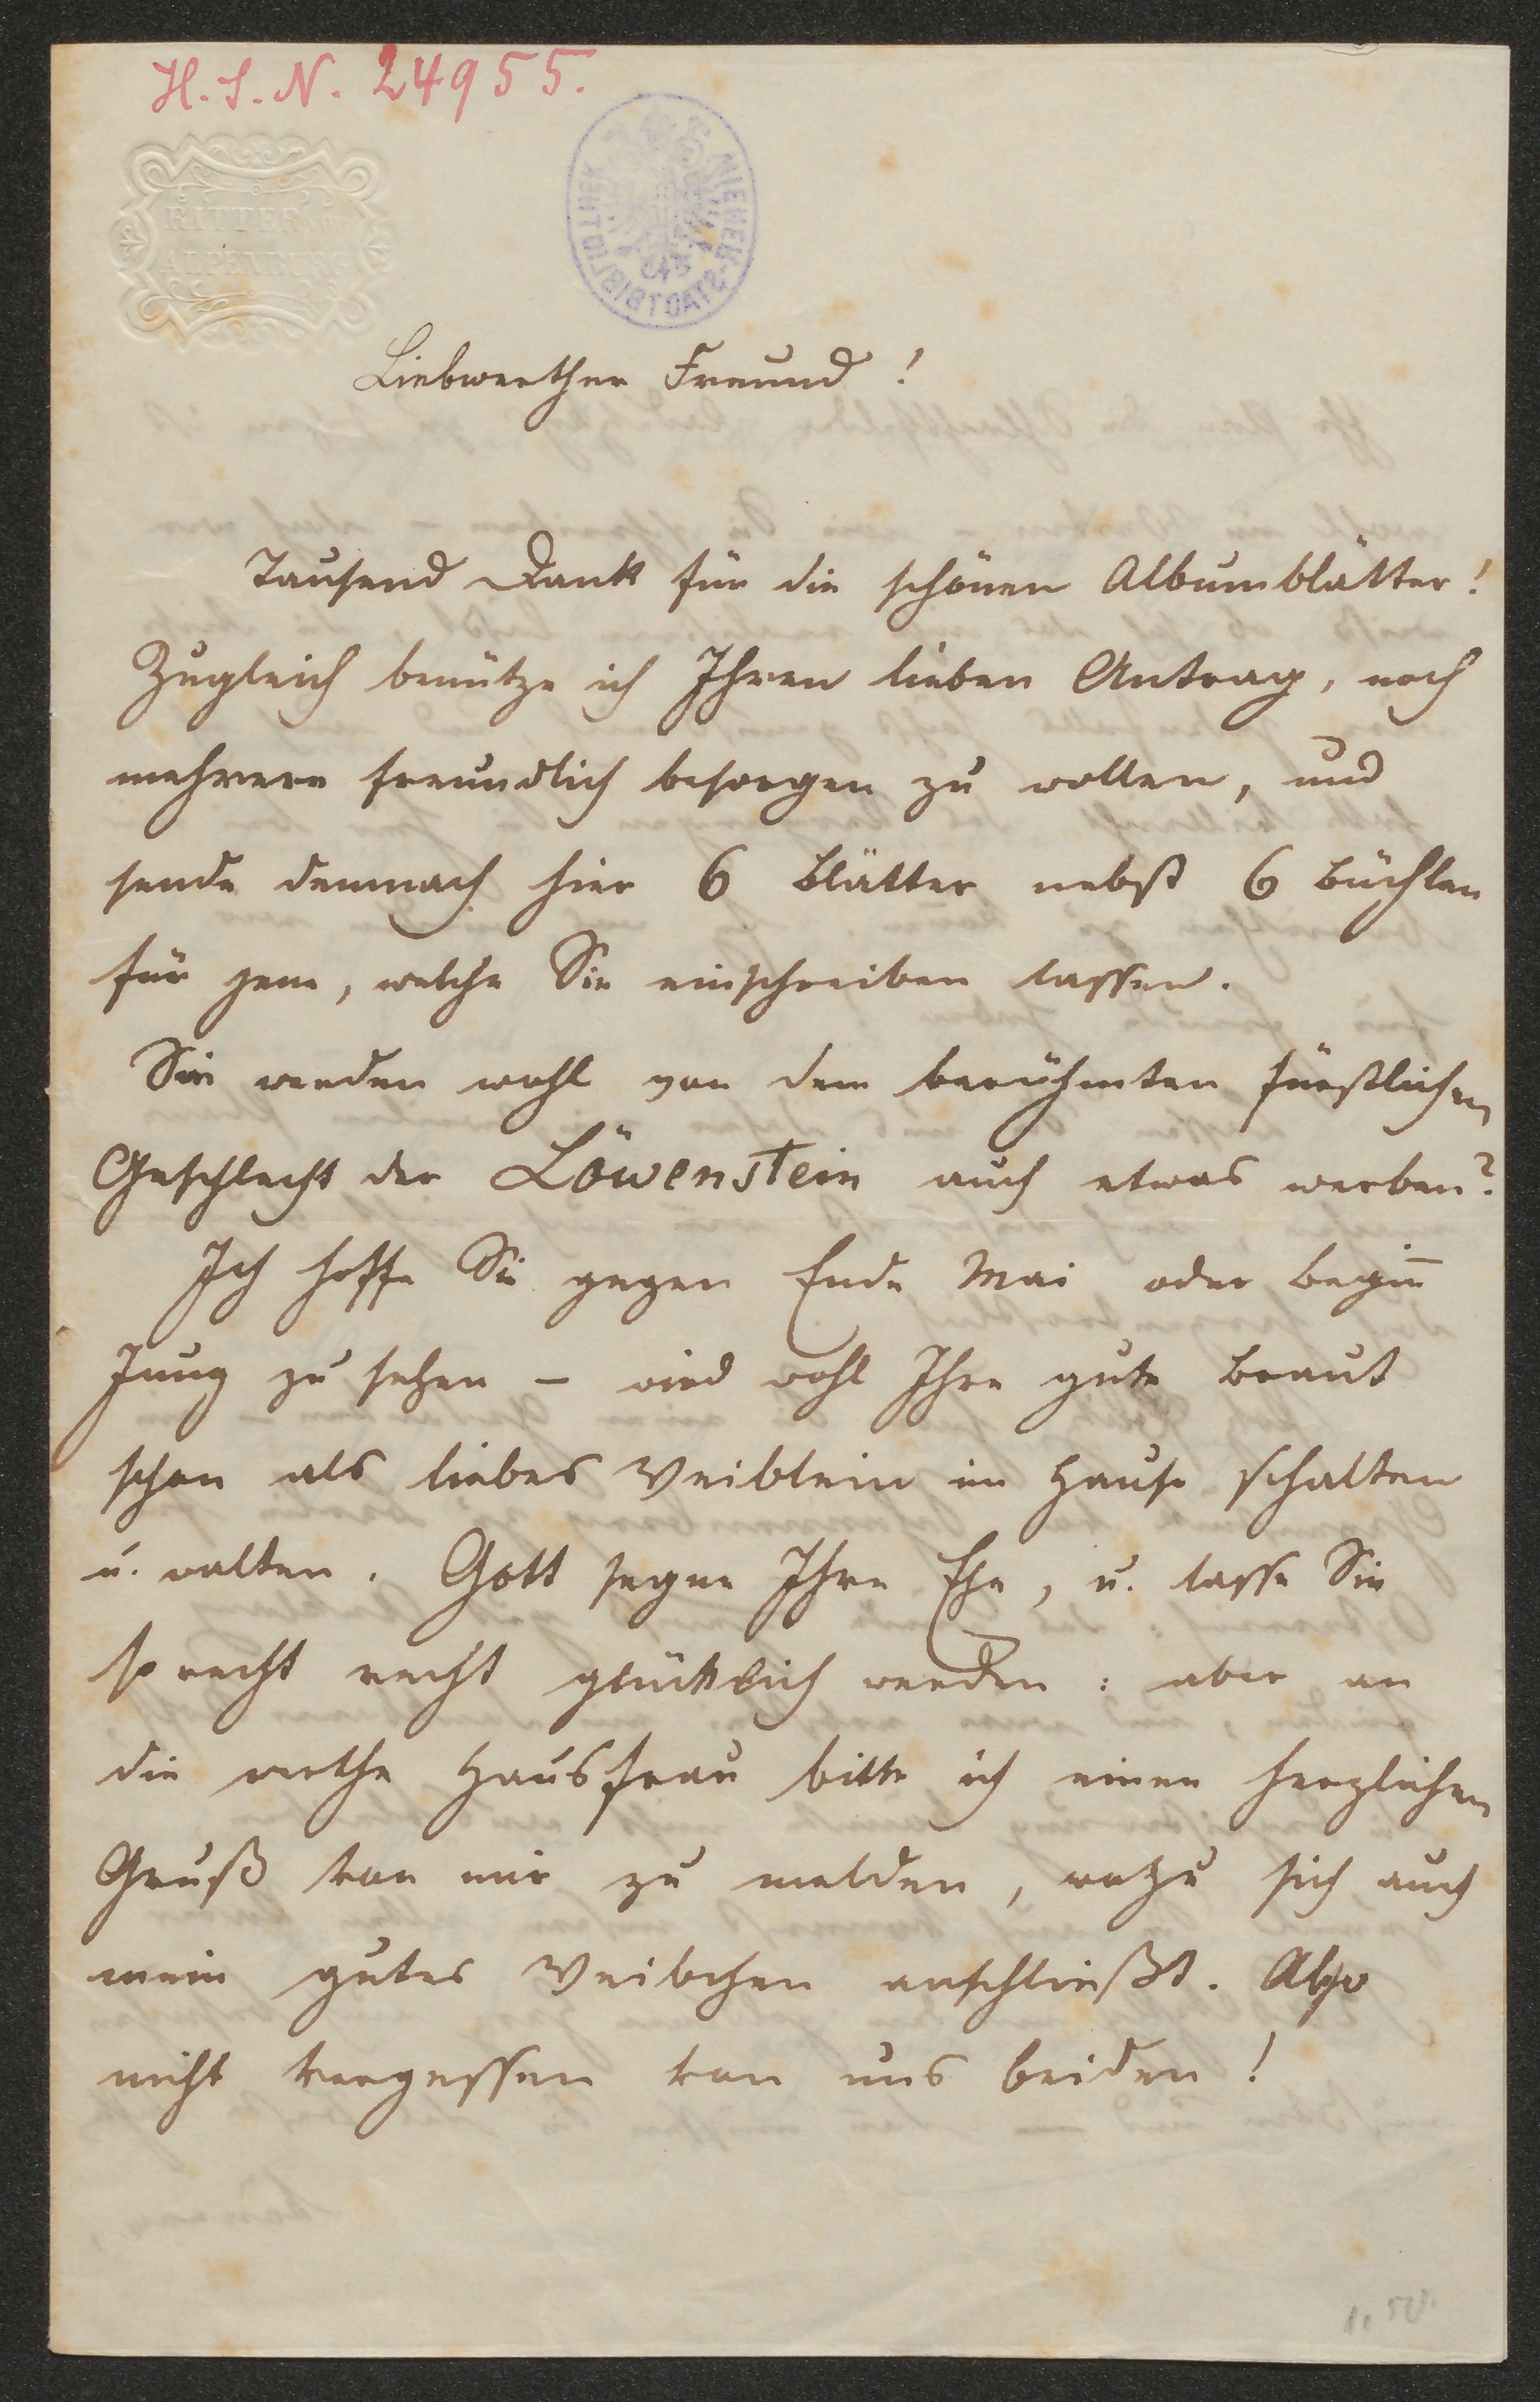 H. I. N. 24955.
RITTER
ALPENBURG
WIENER STADTBIBLIOTHEK
Liebwerther Freund!
Tausend Dank für die schönen Albumblätter!
Zugleich benütze ich Ihren lieben Antrag, noch
mehrere freundlich besorgen zu wollen, und
sende demnach hier 6 Blätter nebst 6 Büchlen
für jene, welche Sie einschreiben lassen.
Sie werden wohl von dem berühmten fürstlichen
Geschlecht der Löwenstein auch etwas werben?
Ich hoffe Sie gegen Ende Mai oder Begin̅
Juny zu sehen – wird wohl Ihre gute Braut
schon als liebes Weiblein im Hause schalten
u. walten. Gott segne Ihre Ehe, u. lasse Sie
so recht recht glücklich werden: aber an
die werthe Hausfrau bitte ich einen herzlichen
Gruß von mir zu melden, wozu sich auch
mein gutes Weibchen anschließt. Also
nicht vergessen von uns beiden!